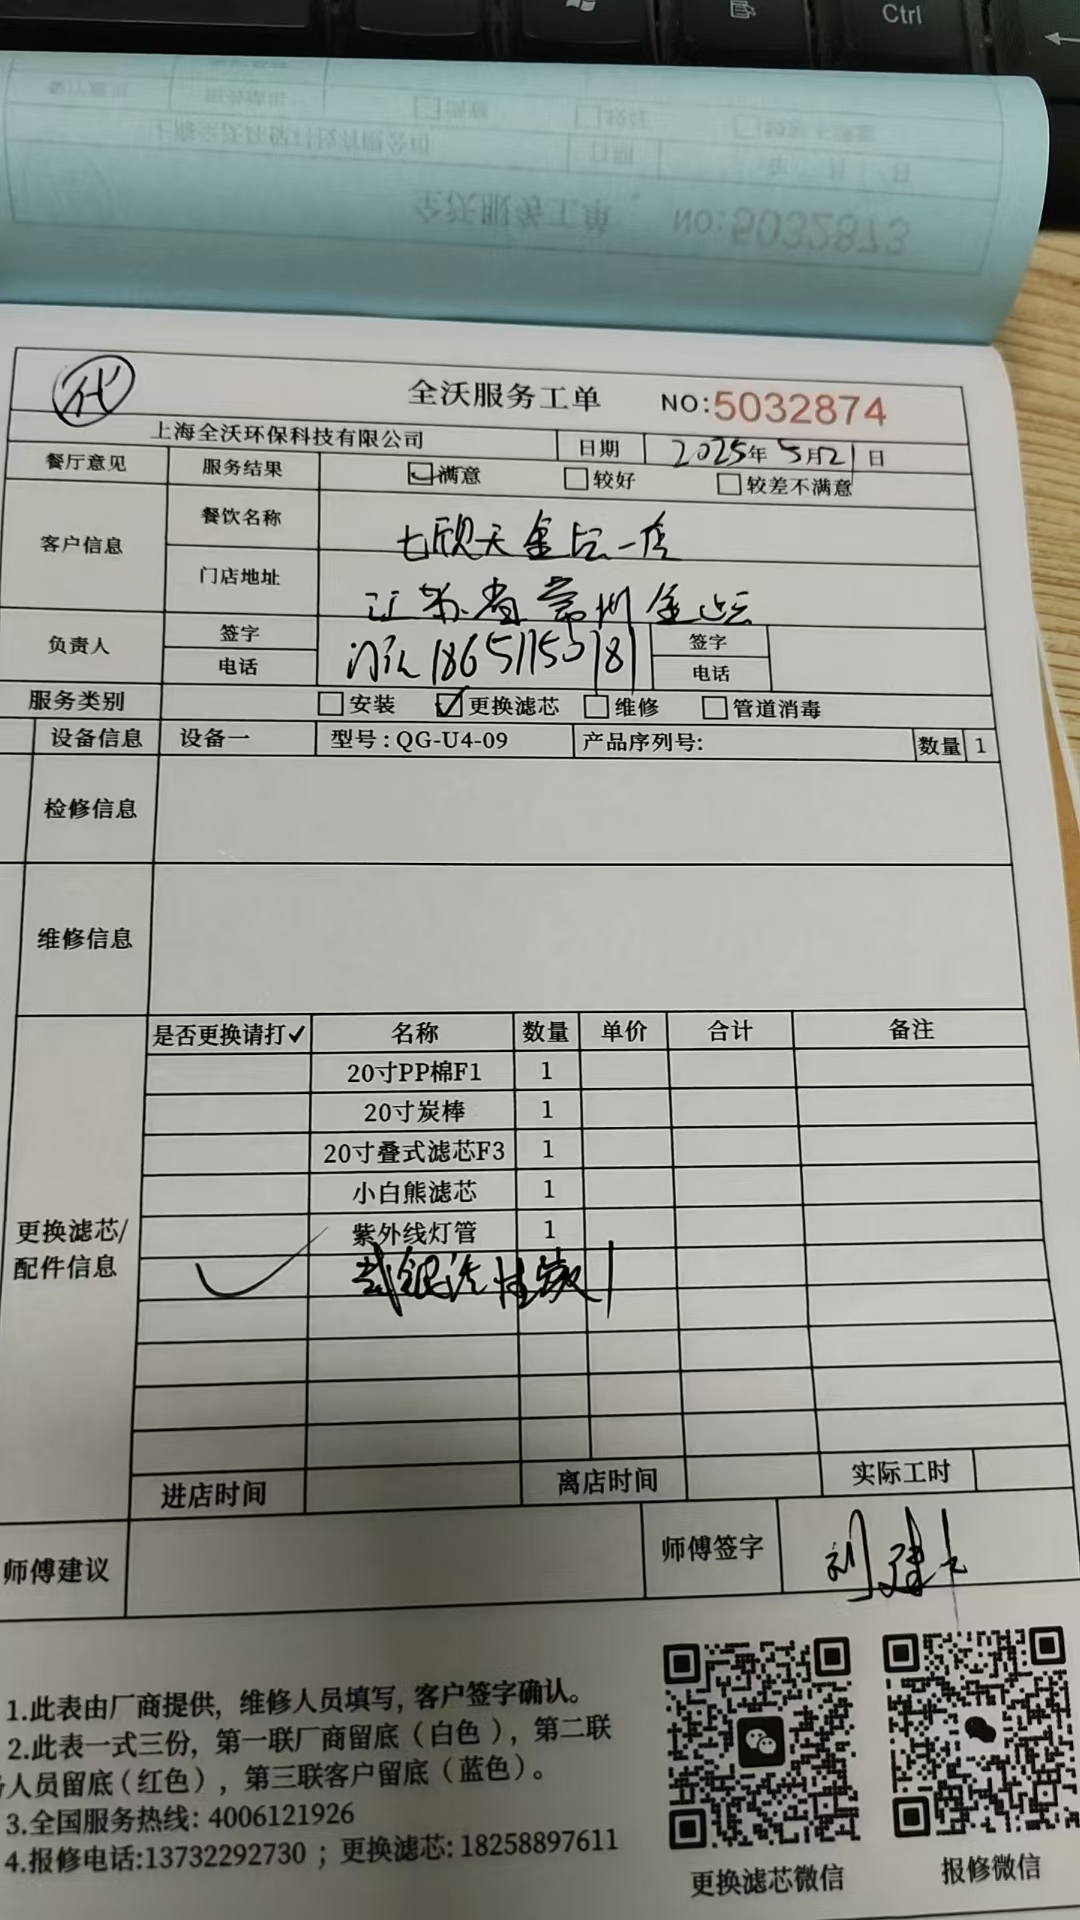 Ctrl
全沃服务工单 NO:5032873
代
全沃服务工单 NO:5032874
上海全沃环保科技有限公司 日期 2025年5月21日
餐厅意见 服务结果 满意 较好 较差不满意
客户信息 餐饮名称 七欣天金坛一店
门店地址 江苏省常州金坛
负责人 签字 电话 18651150181 签字 电话
服务类别 安装 更换滤芯 维修 管道消毒
设备信息 设备一 型号:QG-U4-09 产品序列号: 数量 1
检修信息
维修信息
更换滤芯/配件信息
是否更换请打✓ 名称 数量 单价 合计 备注
20寸PP棉F1 1
20寸炭棒 1
20寸叠式滤芯F3 1
小白熊滤芯 1
紫外线灯管 1
✓ 载银活性炭 1
进店时间 离店时间 实际工时
师傅建议 师傅签字 刘建
1.此表由厂商提供, 维修人员填写, 客户签字确认。
2.此表一式三份, 第一联厂商留底(白色), 第二联
人员留底(红色), 第三联客户留底(蓝色)。
3.全国服务热线: 4006121926
4.报修电话:13732292730 ; 更换滤芯: 18258897611
更换滤芯微信 报修微信